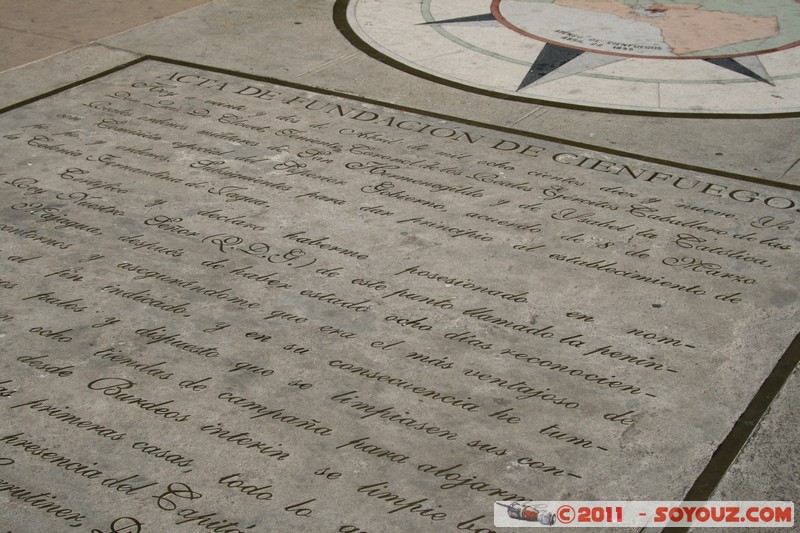 ACTA DE FUNDACIÓN DE CIENFUEGOS
Hoy veinte y dos de Abril de mil ocho cientos diez y nueve, Yo
Don Luis D. Clouet, Teniente Coronel de los Reales Ejércitos Caballero de las
Reales ordenes militares de San Hermenegildo y de Ysabel la Católica,
Comisión especial del Superior Gobierno, acuerdo de 8 de Marzo
y ordenes Subsiguientes para dar principio al establecimiento de
la Colonia Fernandina de Jagua.
Certifico y declaro haberme posesionado en nom-
Rey Nuestro Señor (Q.D.G.) de este punto llamado la penín-
Majagua, después de haber estado ocho días reconocien-
contornos y asegurándome que era el más ventajoso de
al fin indicado, y en su consecuencia he tum-
palos y dispuesto que se limpiasen sus con-
ocho tiendas de campaña para alojarme
desde Burdeos interin se limpie
las primeras casas, todo lo
presencia del Capitán